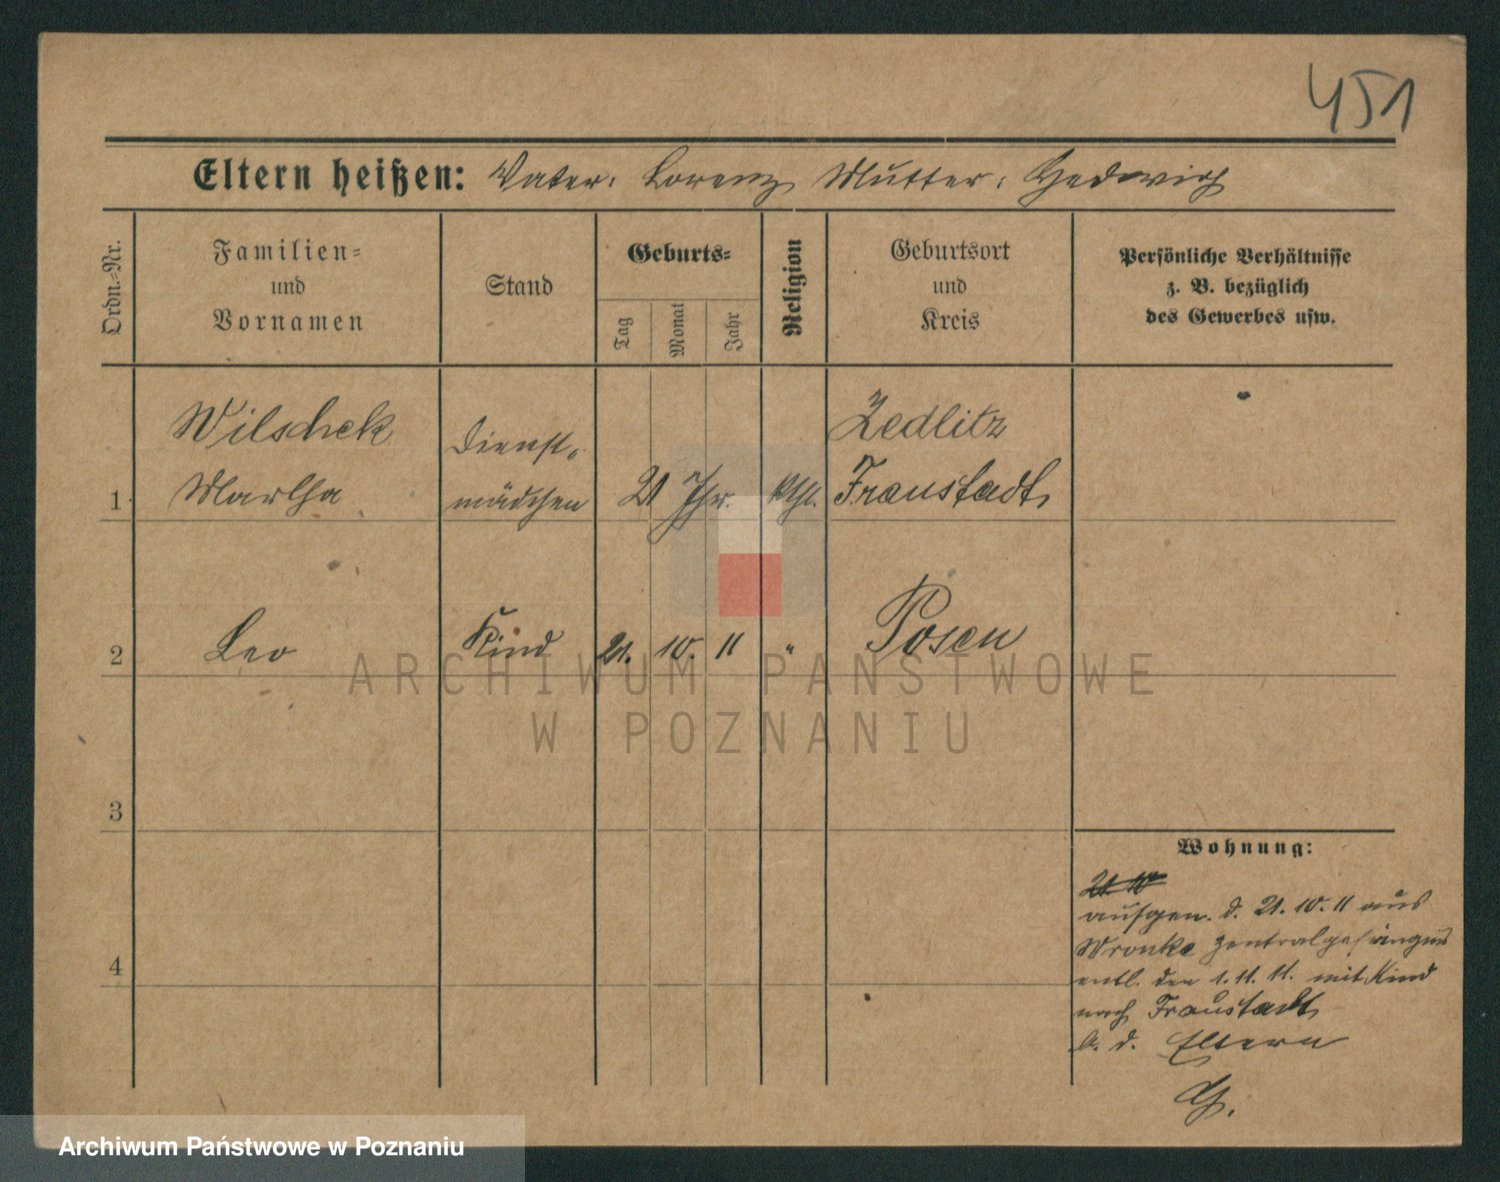 451
Eltern heißen: Vater: Lorenz Mutter: Hedwig
Ordn.-Nr.
Familien-
und
Vornamen
Stand
Geburts-
Tag
Monat
Jahr
Religion
Geburtsort
und
Kreis
Persönliche Verhältnisse
z. B. bezüglich
des Gewerbes usw.
Wilschek
Martha
Dienst-
mädchen
1
21 Jhr.
kth.
Zedlitz
Fraustadt
2
Leo
Kind
21. 10. 11
"
Posen
3
4
Wohnung:
21. 10
aufgen. d. 21. 10. 11 aus
Wronke Zentralgefängnis
entl. den 1. 11. 11. mit Kind
nach Fraustadt
b. d. Eltern
G.
ARCHIWUM PAŃSTWOWE
W POZNANIU
Archiwum Państwowe w Poznaniu